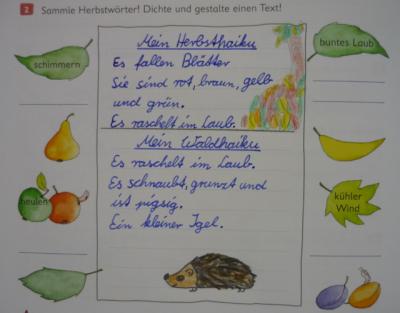 2 Sammle Herbstwörter! Dichte und gestalte einen Text!
schimmern
buntes Laub
heulen
kühler
Wind
Mein Herbsthaiku
Es fallen Blätter
Sie sind rot, braun, gelb
und grün.
Es raschelt im Laub.
Mein Waldhaiku
Es raschelt im Laub.
Es schnaubt, grunzt und
ist pigsig.
Ein kleiner Igel.